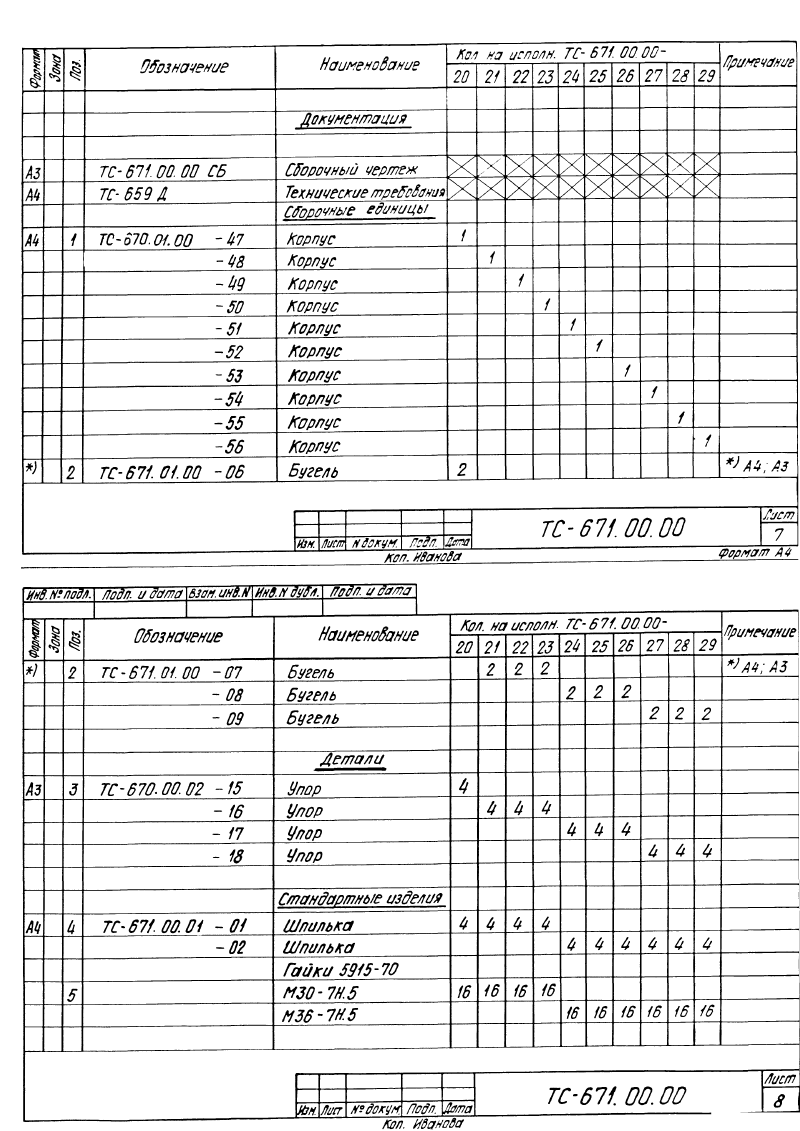 Формат Зона Поз. Обозначение Наименование Кол на исполн. ТС-671.00.00- Примечание
20 21 22 23 24 25 26 27 28 29
Документация
А3 ТС-671.00.00 СБ Сборочный чертеж
А4 ТС-659 Д Технические требования
Сборочные единицы
А4 1 ТС-670.01.00 -47 Корпус 1
-48 Корпус 1
-49 Корпус 1
-50 Корпус 1
-51 Корпус 1
-52 Корпус 1
-53 Корпус 1
-54 Корпус 1
-55 Корпус 1
-56 Корпус 1
*) 2 ТС-671.01.00 -06 Бугель 2 *) А4; А3
ТС-671.00.00 Лист
7
Изм. Лист N докум. Подп. Дата
Коп. Иванова Формат А4
Инв. № подл. Подп. и дата Взам. инв. N Инв. N дубл. Подп. и дата
Формат Зона Поз. Обозначение Наименование Кол. на исполн. ТС-671.00.00- Примечание
20 21 22 23 24 25 26 27 28 29
*) 2 ТС-671.01.00 -07 Бугель 2 2 2 *) А4; А3
-08 Бугель 2 2 2
-09 Бугель 2 2 2
Детали
А3 3 ТС-670.00.02 -15 Упор 4
-16 Упор 4 4 4
-17 Упор 4 4 4
-18 Упор 4 4 4
Стандартные изделия
А4 4 ТС-671.00.01 -01 Шпилька 4 4 4 4
-02 Шпилька 4 4 4 4 4 4
Гайки 5915-70
5 М30-7Н.5 16 16 16 16
М36-7Н.5 16 16 16 16 16 16
ТС-671.00.00 Лист
8
Изм. Лист № докум. Подп. Дата
Коп. Иванова